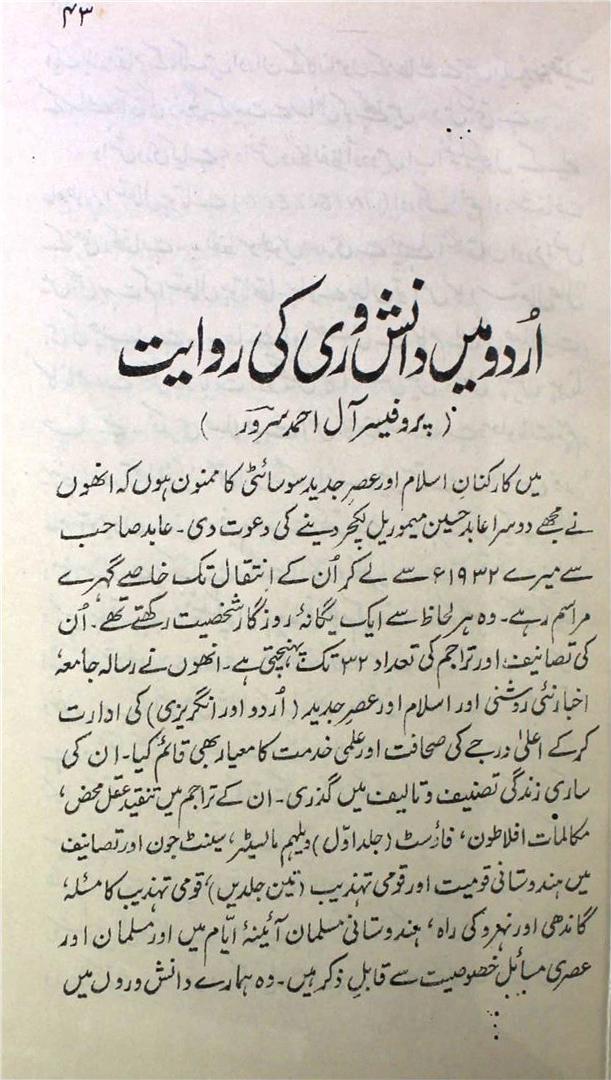 ۴۳
اُردو میں دانش وری کی روایت
( پروفیسر آل احمد سرور )
میں کارکنانِ اسلام اور عصرِ جدید سوسائٹی کا ممنون ہوں کہ انھوں
نے مجھے دوسرا عابد حسین میموریل لیکچر دینے کی دعوت دی۔ عابد صاحب
سے میرے ۱۹۳۲ء سے لے کر اُن کے انتقال تک خاصے گہرے
مراسم رہے۔ وہ ہر لحاظ سے ایک یگانۂ روزگار شخصیت رکھتے تھے۔ اُن
کی تصانیف اور تراجم کی تعداد ۳۲ تک پہنچتی ہے۔ انھوں نے رسالہ جامعہ،
اخبار نئی روشنی اور اسلام اور عصرِ جدید ( اُردو اور انگریزی) کی ادارت
کر کے اعلیٰ درجے کی صحافت اور علمی خدمت کا معیار بھی قائم کیا۔ ان کی
ساری زندگی تصنیف و تالیف میں گذری۔ ان کے تراجم میں تنقید عقل محض،
مکالمات افلاطون، فاؤسٹ (جلد اوّل) ویلہم مائسٹر، سینٹ جون اور تصانیف
میں ہندوستانی قومیت اور قومی تہذیب (تین جلدیں)، قومی تہذیب کا مسئلہ،
گاندھی اور نہرو کی راہ، ہندوستانی مسلمان آئینۂ ایّام میں اور مسلمان اور
عصری مسائل خصوصیت سے قابلِ ذکر ہیں۔ وہ ہمارے دانش وروں میں